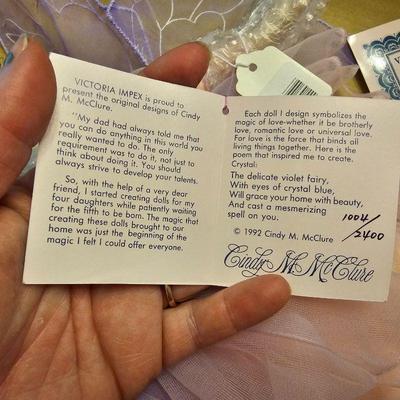 VICTORIA IMPEX is proud to
present the original designs of Cindy
M. McClure.
"My dad had always told me that
you can do anything in this world you
really wanted to do. The only
requirement was to do it, not just to
think about doing it. You should
always strive to develop your talents.
So, with the help of a very dear
friend, I started creating dolls for my
four daughters while patiently waiting
for the fifth to be born. The magic that
creating these dolls brought to our
home was just the beginning of the
magic I felt I could offer everyone.
Each doll I design symbolizes the
magic of love-whether it be brotherly
love, romantic love or universal love.
For love is the force that binds all
living things together. Here is the
poem that inspired me to create
Crystal:
The delicate violet fairy,
With eyes of crystal blue,
Will grace your home with beauty,
And cast a mesmerizing
spell on you.
1004/2400
© 1992 Cindy M. McClure
Cindy M. McClure